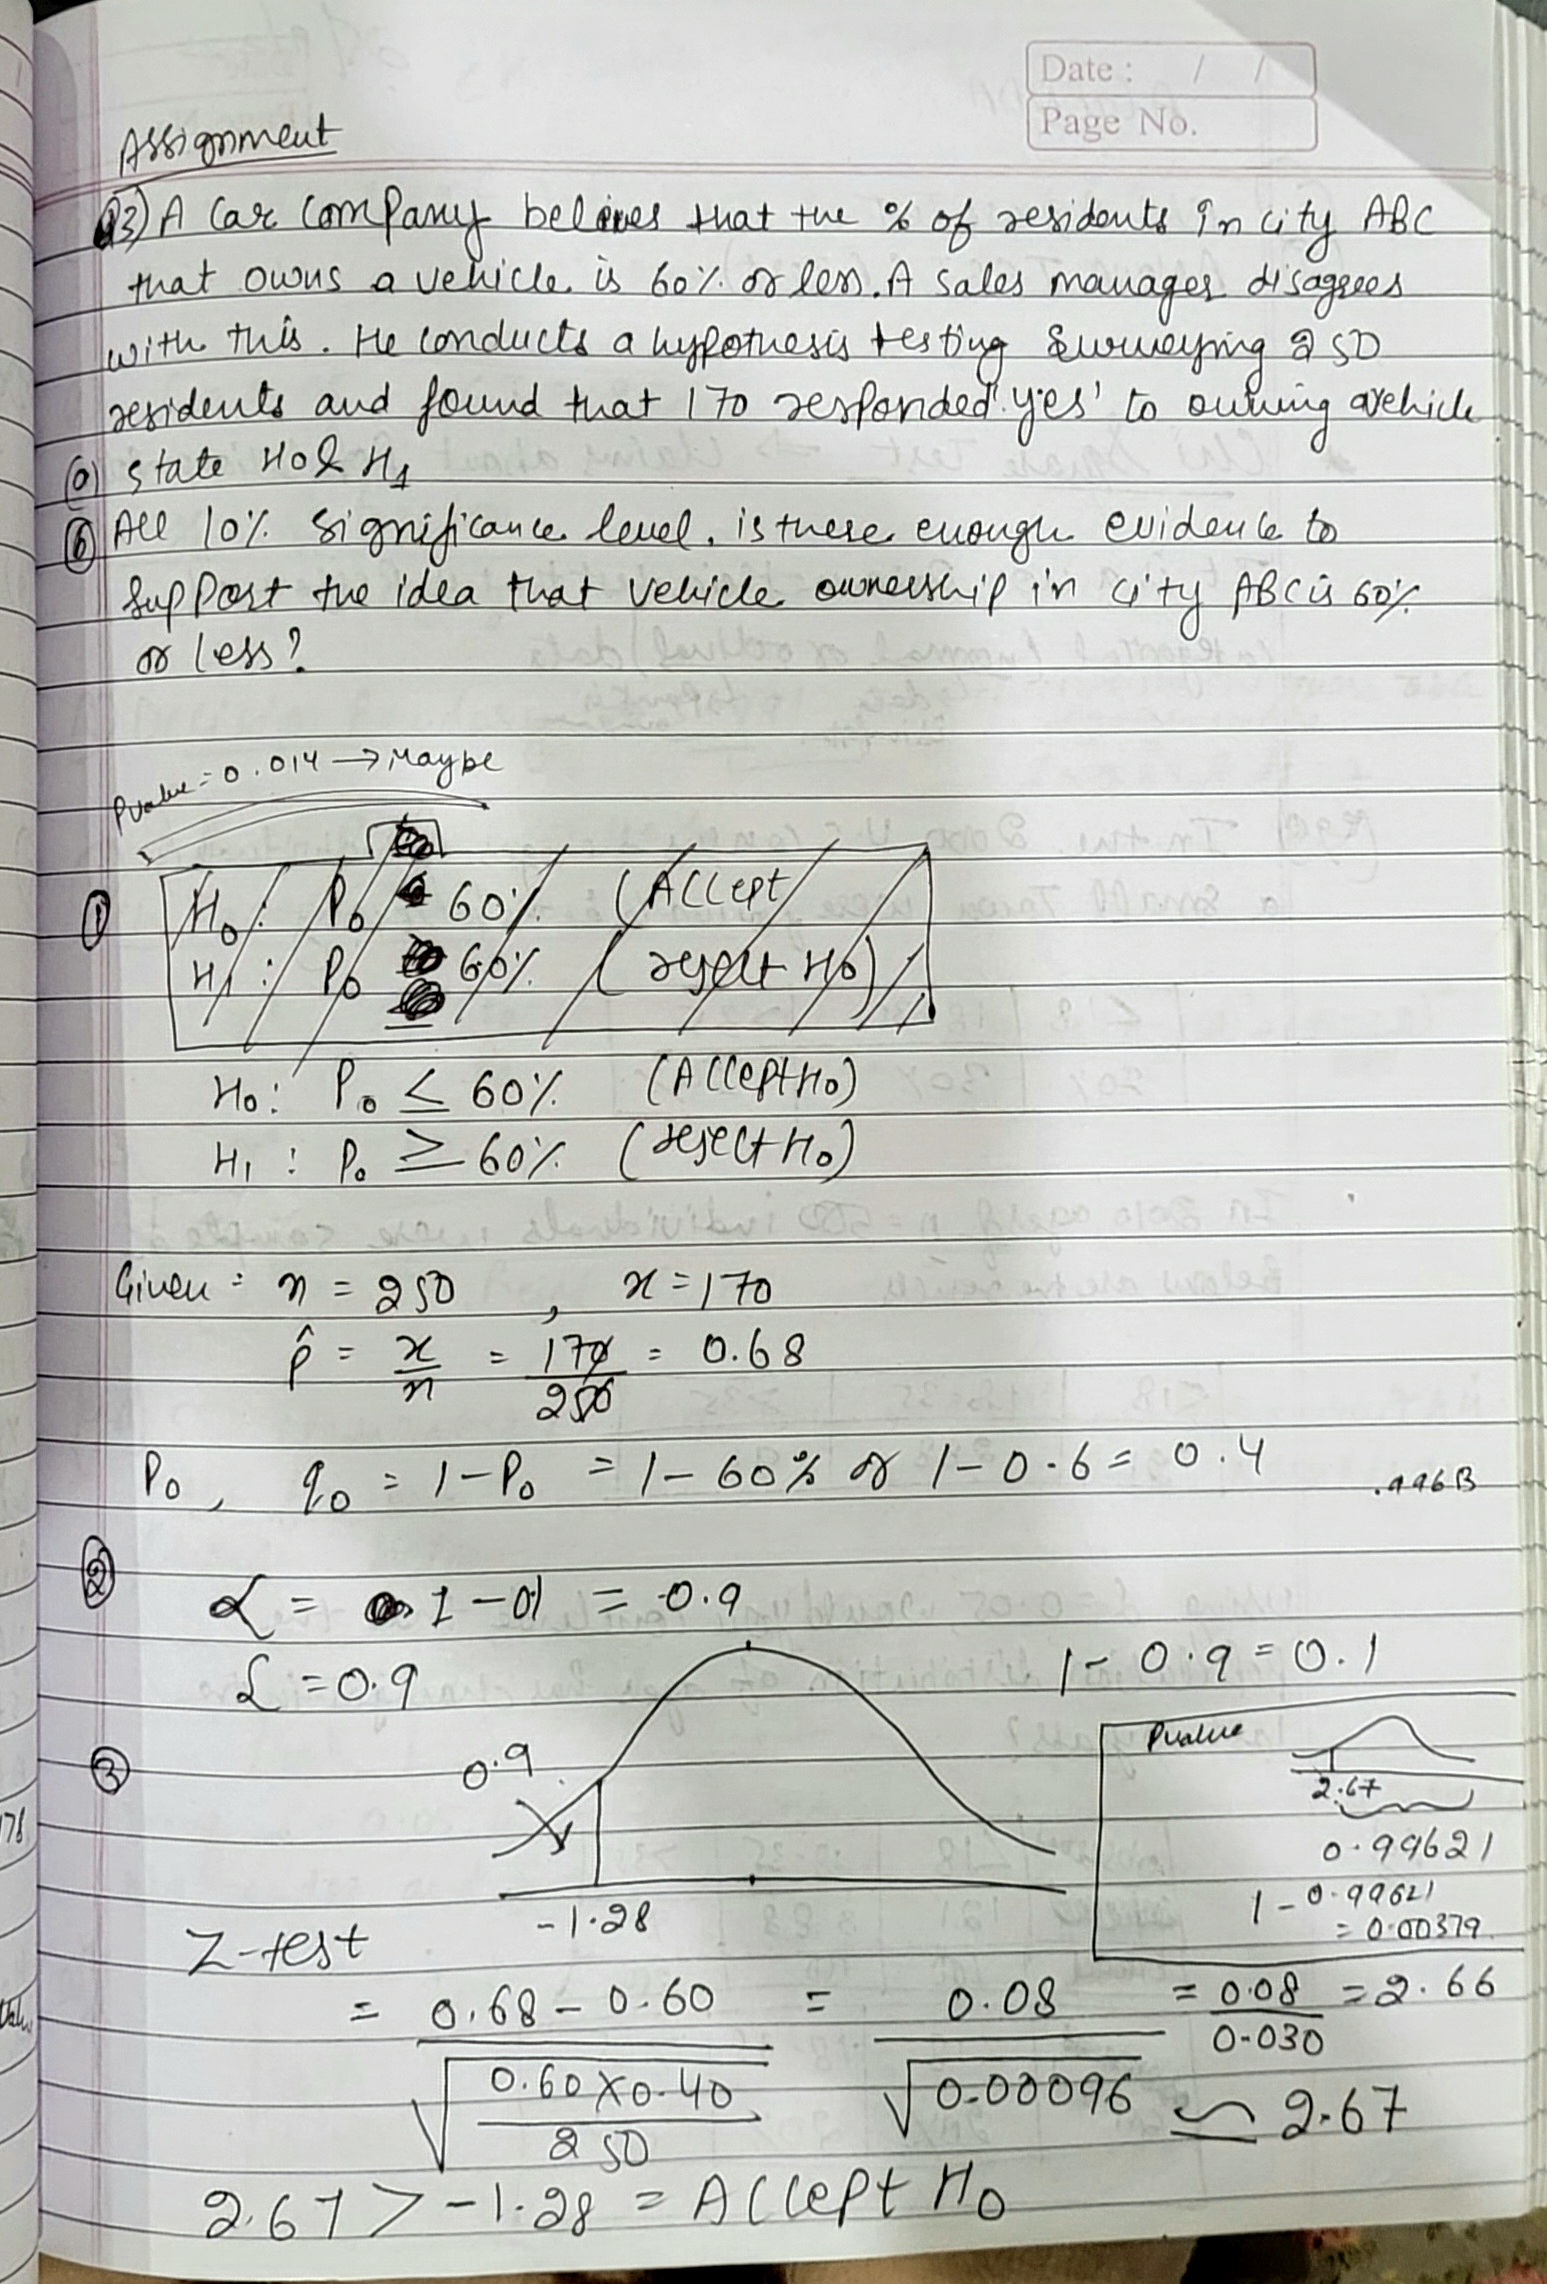 Date : / /
Page No.
Assignment
Q3) A Car Company belives that the % of residents in city ABC
that owns a vehicle is 60% or less. A sales manager disagrees
with this. He conducts a hypothesis testing surveying 250
residents and found that 170 responded 'yes' to owning a vehicle
(a) state H0 & H1
(b) All 10% significance level, is there enough evidence to
support the idea that vehicle ownership in city ABC is 60%
or less?
Pvalue = 0.014 → Maybe
① H0 : P0 60% (Accept
H1 : P0 60% (reject H0)
H0 : P0 ≤ 60% (Accept H0)
H1 : P0 ≥ 60% (reject H0)
Given : n = 250 , x = 170
p̂ = x/n = 170/250 = 0.68
P0 , q0 = 1-P0 = 1-60% or 1-0.6 = 0.4
② α = 1-0.1 = 0.9
α = 0.9
1-0.9 = 0.1
③ 0.9
-1.28
Pvalue
2.67
0.99621
1-0.99621
= 0.00379
Z-test
= 0.68-0.60 / √(0.60×0.40 / 250) = 0.08 / √0.00096 = 0.08/0.030 = 2.66
≃ 2.67
2.67 > -1.28 = Accept H0